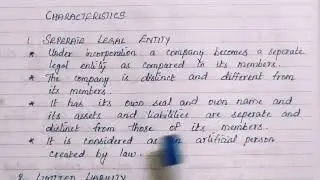 CHARACTERISTICS
1. SEPERATE LEGAL ENTITY
* Under incorporation a company becomes a seperate
legal entity as compared to its members.
* The company is distinct and different from
its members.
* It has its own seal and own name and
its assets and liabilities are seperate and
distinct from those of its members.
* It is considered as an artificial person
created by law.
2. LIMITED LIABILITY